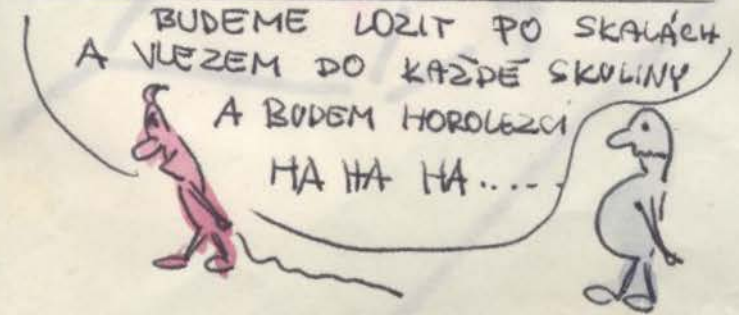 BUDEME LOZIT PO SKALÁCH
A VLEZEM DO KAŽDÉ SKULINY
A BUDEM HOROLEZCI
HA HA HA.....